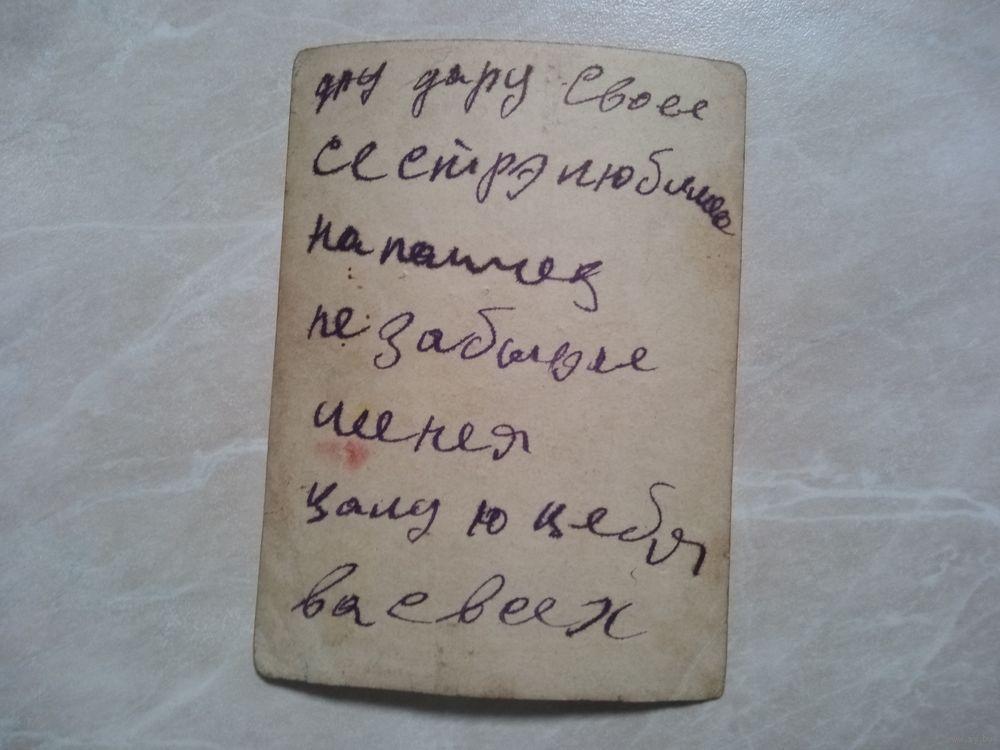 дару своее
сестрэ любимое
на памяц
не забывае
меня
цалую цебя
вас всех